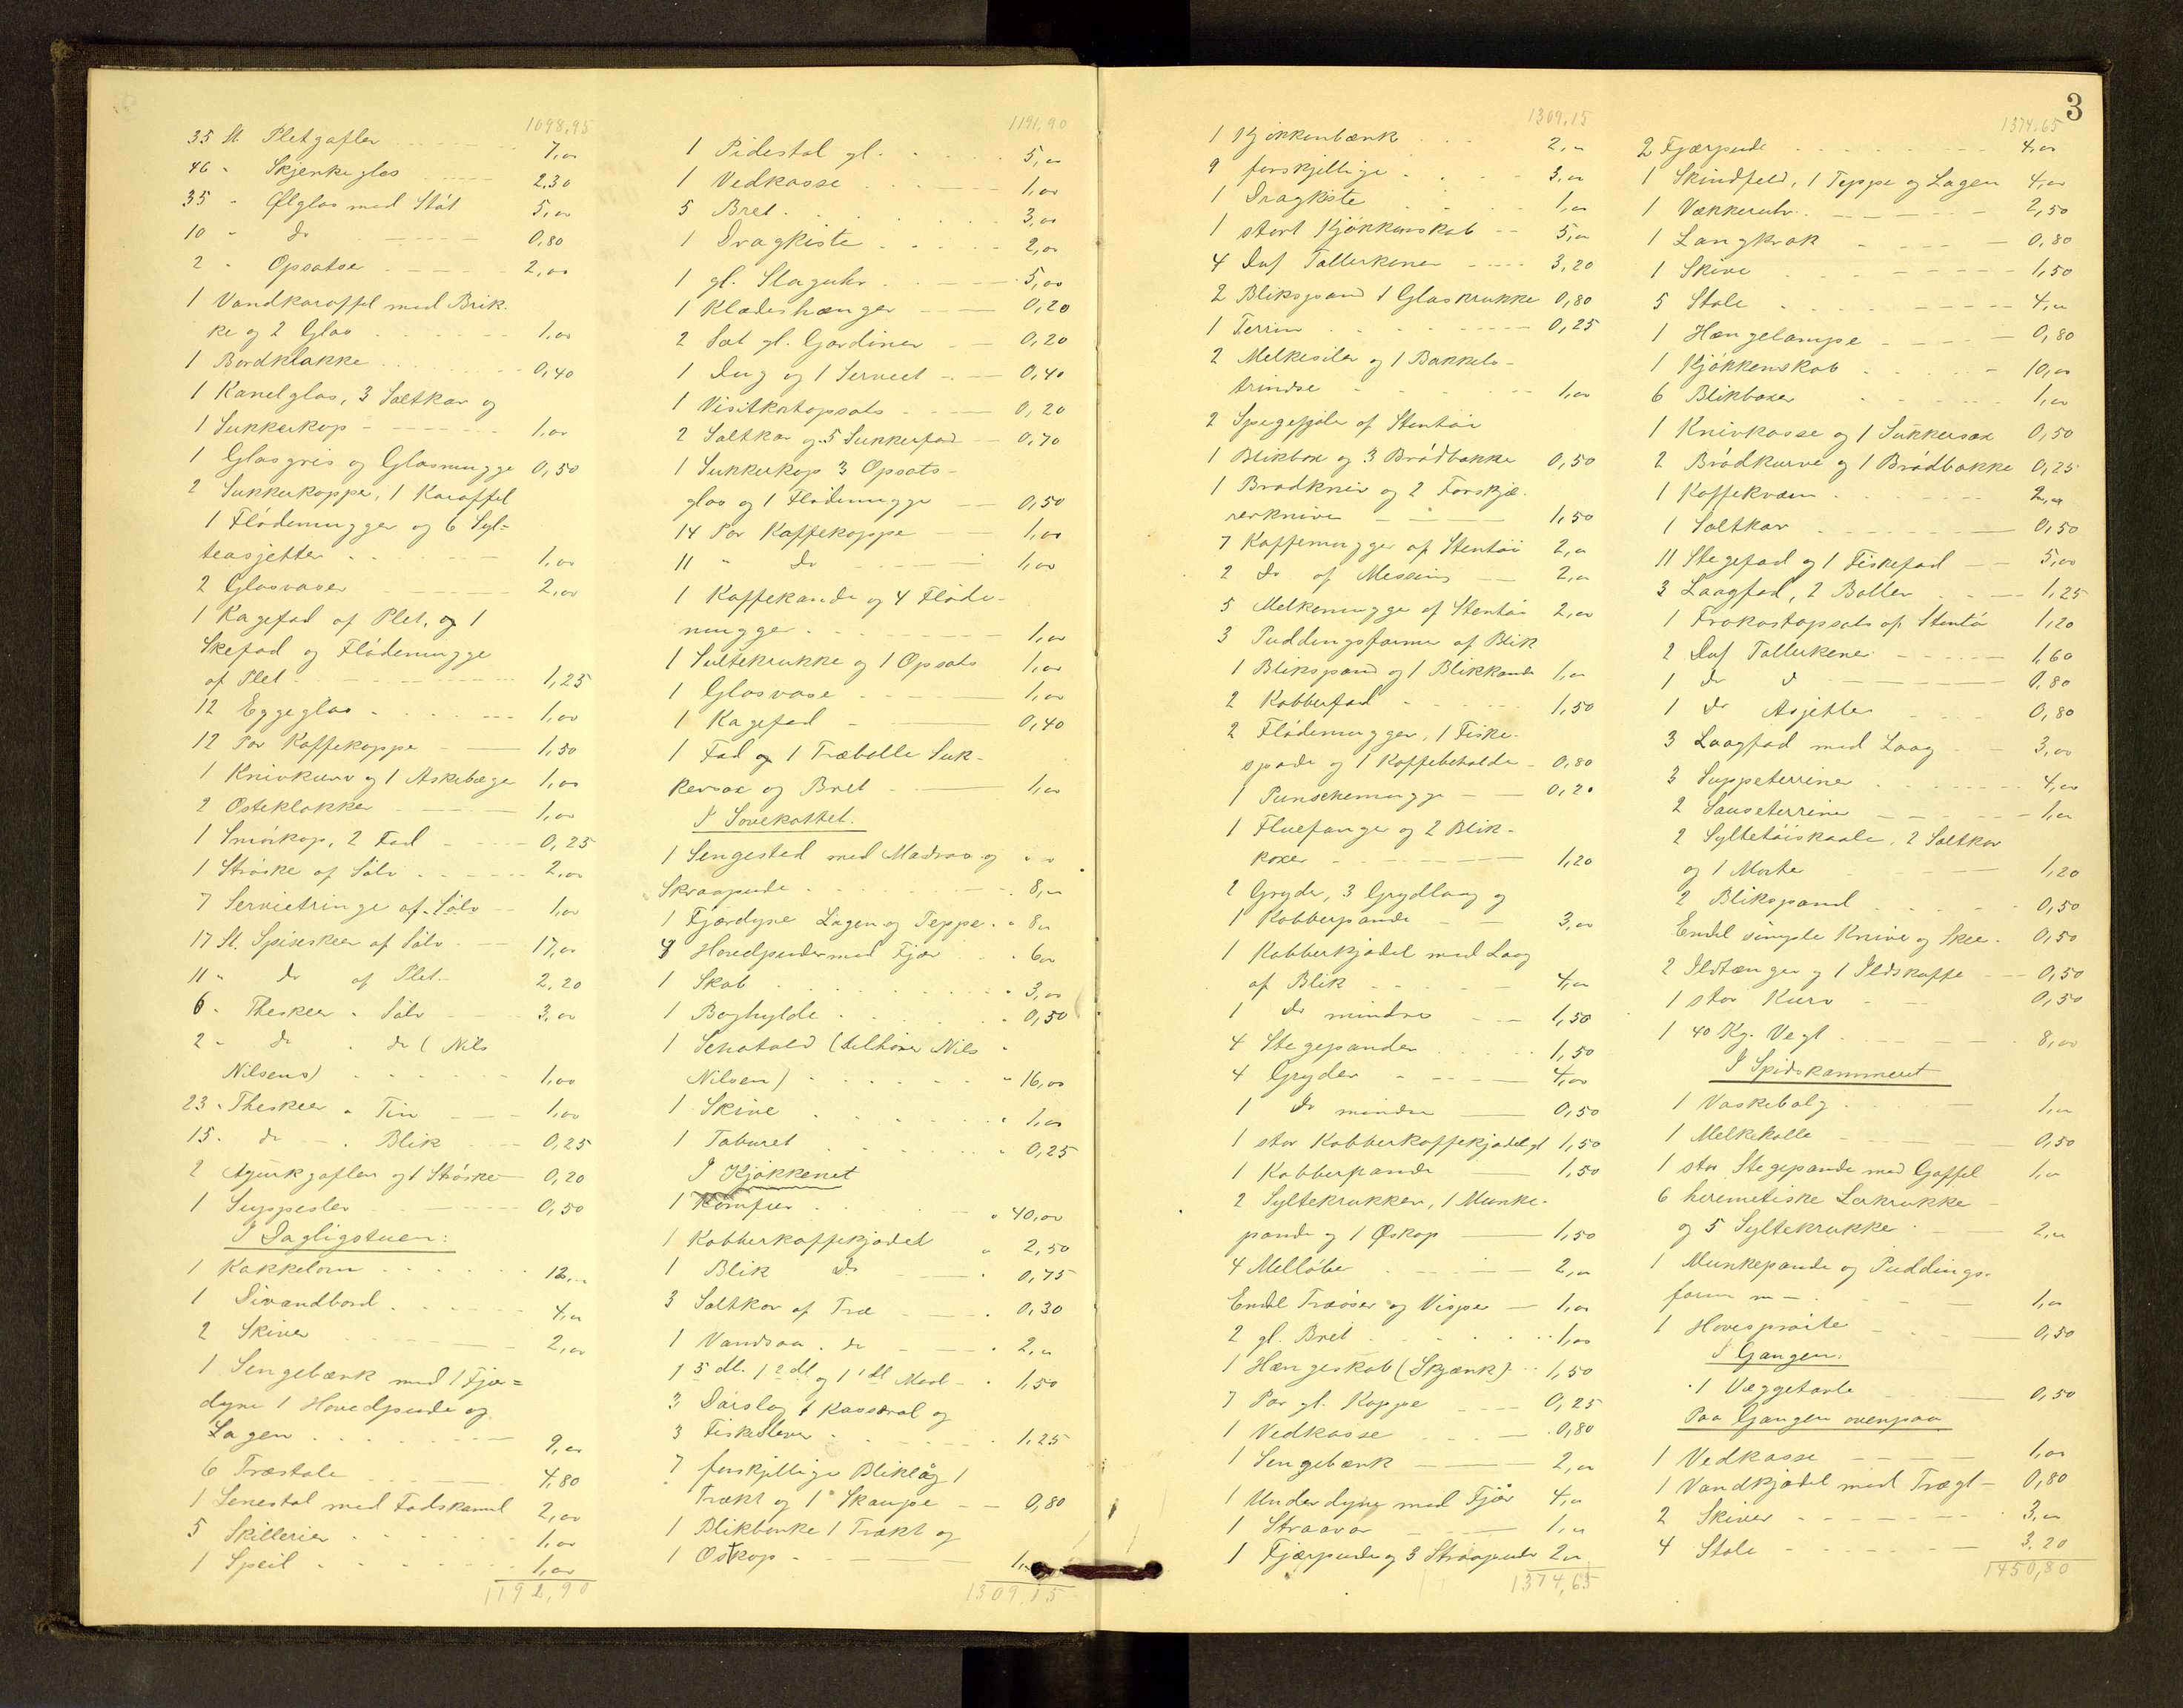 1098,95
35 St. Pletgafler 7,00
46 " Skjenkeglas 2,30
35 " Ølglas med Stöt 5,00
10 " do 0,80
2 " Opsatse 2,00
1 Vandkaraffel med Brik-
ke og 2 Glas 1,00
1 Bordklakke 0,40
1 Kanelglas, 3 Saltkar og
1 Sukkerkop 1,00
1 Glasgris og Glasmugge 0,50
2 Sukkerkopper, 1 Karaffel
1 Flödemugger og 6 Syl=
teasjetter 1,00
2 Glasvaser 2,00
1 Kagefad af Plet, og 1
Skefad og Flödemugge
af Plet 1,25
12 Eggeglas 1,00
12 Par Kaffekopper 1,50
1 Knivkurv og 1 Askebæger 1,00
2 Osteklokker 1,00
1 Smörkop, 2 Fad 0,25
1 Ströske af Sölv 2,00
7 Servietringe af Sölv 1,00
17 St. Spiseskeer af Sölv 17,00
11 " do af Plet 2,20
6 " Theskeer " Sölv 3,00
2 " do " do (Nils
Nilsens) 1,00
23 " Theskeer " Tin 1,00
15 " do " Blik 0,25
2 Agurkgafler og 1 Ströske 0,20
1 Suppeslev 0,50
I Dagligstuen:
1 Kakkelovn 12,00
1 Divandbord 4,00
2 Skiver 2,00
1 Sengebænk med 1 Fjær=
dyne 1 Hovedpude og
Lagen 9,00
6 Træstole 4,80
1 Lenestol med Fodskammel 2,00
5 Skillerier 1,00
1 Speil 1,00
1192,90
1191,90
1 Pidestal gl. 5,00
1 Vedkasse 1,00
5 Bret 3,00
1 Dragkiste 2,00
1 gl. Slaguhr 5,00
1 Klædeshænger 0,20
2 Sæt gl. Gardiner 0,20
1 Dug og 1 Serviet 0,40
1 Visitkortopsats 0,20
2 Saltkar og 5 Sukkerfad 0,70
1 Sukkerkop 3 Opsats-
glas og 1 Flödemugge 0,50
14 Par Kaffekoppe 1,00
11 " do 1,00
1 Kaffekande og 4 Flöde-
mugge 1,00
1 Sultekrukke og 1 Opsats 1,00
1 Glasvase 1,00
1 Kagefad 0,40
1 Fad og 1 Træbolle Suk-
kersax og Bret 1,00
I Sovekottet.
1 Sengested med Madras og
Skraapude 8,00
1 Fjærdyne Lagen og Teppe 8,00
4 Hovedpuder med Fjær 6,00
1 Skab 3,00
1 Boghylde 0,50
1 Schatold (tilhörer Nils
Nilsen) 16,00
1 Skive 1,00
1 Taburet 0,25
I Kjøkkenet
1 Komfur 40,00
1 Kobberkaffekjedel 2,50
1 Blik do 0,75
3 Saltkar af Træ 0,30
1 Vandsaa " do 2,00
1 5 dl. 1 2 dl og 1 1 dl Maal 1,50
3 Dörslag 1 Kasserol og
3 Fiskeslever 1,25
7 forskjellige Bliklåg 1
Trækt og 1 Skaupe 0,80
1 Blikbenke 1 Trækt og
1 Ostkop 1,00
1309,15
1309,15
1 Kjøkkenbænk 2,00
9 forskjellige 3,00
1 Dragkiste 1,00
1 stort Kjøkkenskab 5,00
4 Dus Tallerkener 3,20
2 Blikspand 1 Glaskrukke 0,80
1 Terrin 0,25
2 Melkesiler og 1 Bakkels-
trindse 1,00
2 Spegefjøle af Stentöi
1 Blikbox og 3 Brödbakke 0,50
1 Brödkniv og 2 Forskjæ-
rerknive 1,50
7 Kaffemugger af Stentöi 2,00
2 do af Messing 2,00
5 Melkemugge af Stentöi 2,00
3 Puddingsformer af Blik
1 Blikspand og 1 Blikkande 1,00
2 Kobberfad 1,50
2 Flödemugger, 1 Fiske-
spade og 1 Kaffebeholder 0,80
1 Punschemugge 0,20
1 Fluefanger og 2 Blik-
boxer 1,20
2 Gryder, 3 Grydlaag og
1 Kobberpande 3,00
1 Kobberkjedel med Laag
af Blik 4,00
1 do mindre 1,50
4 Stegepander 1,50
4 Gryder 4,00
1 do mindre 0,50
1 stor Kobberkaffekjedel gl 1,50
1 Kobberpande 1,50
2 Syltekrukker, 1 Munke-
pande og 1 Øskop 1,50
4 Melløbe 2,00
Endel Træöser og Visper 1,00
2 gl. Bret 1,00
1 Hængeskab (Skjænk) 1,50
7 Par gl. Koppe 0,25
1 Vedkasse 0,80
1 Sengebænk 2,00
1 Underdyne med Fjær 4,00
1 Straavar 1,00
1 Fjærpude og 3 Straapude 2,00
1374,65
3
1374,65
2 Fjærpude 4,00
1 Skindfeld, 1 Teppe og Lagen 4,00
1 Vækkeruhr 2,50
1 Langkrak 0,80
1 Skive 1,50
5 Stole 4,00
1 Hængelampe 0,80
1 Kjökkenskab 10,00
6 Blikboxer 1,00
1 Knivkasse og 1 Sukkersax 0,50
2 Brödkurve og 1 Brödbakke 0,25
1 Kaffekværn 2,00
1 Saltkar 0,50
11 Stegefad og 1 Fiskefad 5,00
3 Laagfad, 2 Boller 1,25
1 Frokostopsats af Stentöi 1,20
2 Dus Tallerkener 1,60
1 do d 0,80
1 do Asjetter 0,80
3 Laagfad med Laag 3,00
3 Suppeterriner 4,00
2 Sauseterriner 1,00
2 Syltetöiskaale, 2 Saltkar
og 1 Morter 1,20
2 Blikspand 0,50
Endel simple Knive og Skee 0,50
2 Ildtænger og 1 Ildskaffe 0,50
1 stor Kurv 0,50
1 40 Kg. Vegt 8,00
I Spidskammeret
1 Vaskebalg 1,00
1 Melkekolle 0,50
1 stor Stegepande med Gaffel 1,00
6 heremetiske Lerkrukke
og 5 Syltekrukke 2,00
1 Munkepande og Puddings-
form 1,00
1 Hovesprøite 0,50
I Gangen.
1 Væggetavle 0,50
Paa Gangen ovenpaa
1 Vedkasse 1,00
1 Vandkjedel med Trægl 0,80
2 Skiver 3,00
4 Stole 3,20
1450,80